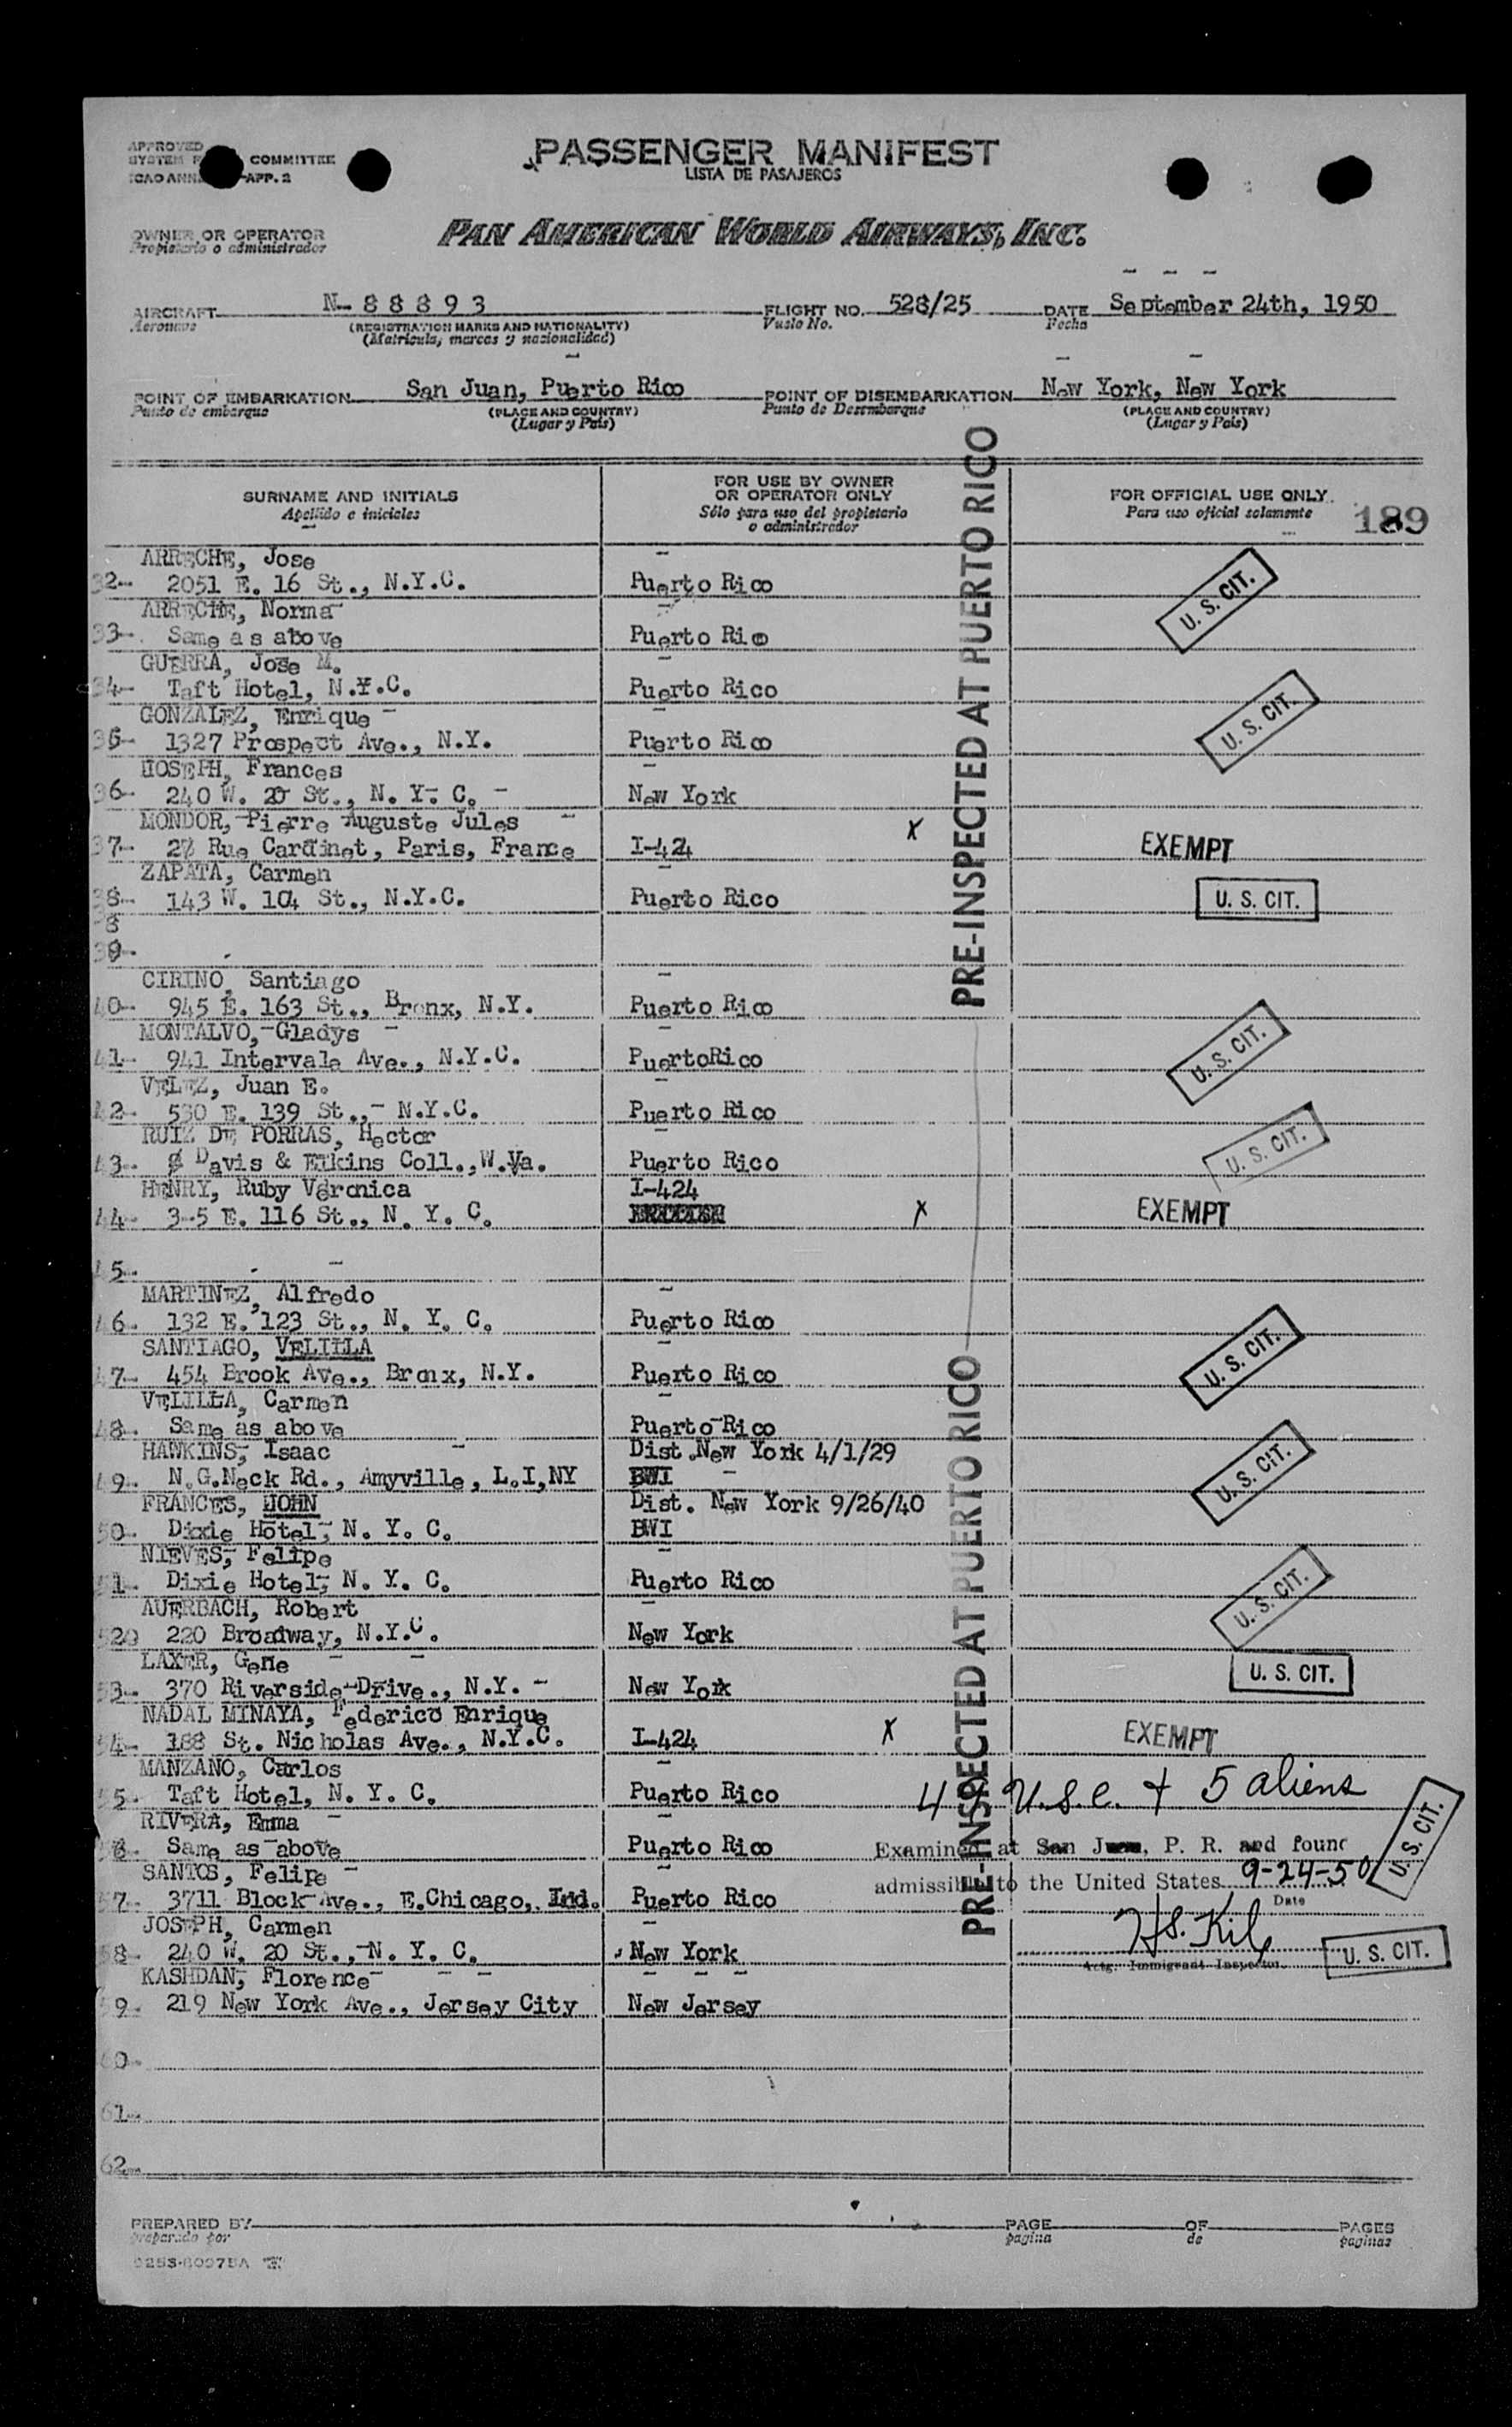 APPROVED
SYSTEM COMMITTEE
ICAO ANN. APP. 2
PASSENGER MANIFEST
LISTA DE PASAJEROS
OWNER OR OPERATOR
Propietario o administrador
PAN AMERICAN WORLD AIRWAYS, INC.
AIRCRAFT N-88893 FLIGHT NO. 528/25 DATE September 24th, 1950
Aeronave (REGISTRATION MARKS AND NATIONALITY) Vuelo No. Fecha
(Matricula, marcas y nacionalidad)
POINT OF EMBARKATION San Juan, Puerto Rico POINT OF DISEMBARKATION New York, New York
Punto de embarque (PLACE AND COUNTRY) Punto de Desembarque (PLACE AND COUNTRY)
(Lugar y País) (Lugar y País)
SURNAME AND INITIALS
Apellido e iniciales
FOR USE BY OWNER
OR OPERATOR ONLY
Sólo para uso del propietario
o administrador
FOR OFFICIAL USE ONLY
Para uso oficial solamente
189
PRE-INSPECTED AT PUERTO RICO
ARRECHE, Jose
32- 2051 E. 16 St., N.Y.C. Puerto Rico U. S. CIT.
ARRECHE, Norma
33- Same as above Puerto Rico
GUERRA, Jose M.
34- Taft Hotel, N.Y.C. Puerto Rico
GONZALEZ, Enrique U. S. CIT.
35- 1327 Prospect Ave., N.Y. Puerto Rico
JOSEPH, Frances
36- 240 W. 20 St., N. Y. C. New York
MONDOR, Pierre Auguste Jules
37- 27 Rue Cardinet, Paris, France I-424 X EXEMPT
ZAPATA, Carmen
38- 143 W. 104 St., N.Y.C. Puerto Rico U. S. CIT.
38
39-
CIRINO, Santiago
40- 945 E. 163 St., Bronx, N.Y. Puerto Rico
MONTALVO, Gladys
41- 941 Intervale Ave., N.Y.C. PuertoRico U. S. CIT.
VELEZ, Juan E.
42- 530 E. 139 St., N.Y.C. Puerto Rico
RUIZ DE PORRAS, Hector
43- Davis & Elkins Coll., W.Va. Puerto Rico U. S. CIT.
HENRY, Ruby Veronica I-424
44- 3-5 E. 116 St., N. Y. C. X EXEMPT
45-
MARTINEZ, Alfredo
46- 132 E. 123 St., N. Y. C. Puerto Rico
SANTIAGO, VELILLA
47- 454 Brook Ave., Bronx, N.Y. Puerto Rico U. S. CIT.
VELILLA, Carmen
48- Same as above Puerto Rico
HAWKINS, Isaac Dist. New York 4/1/29
49- N.G.Neck Rd., Amyville, L.I,NY BWI U. S. CIT.
FRANCES, JOHN Dist. New York 9/26/40
50- Dixie Hotel, N. Y. C. BWI
NIEVES, Felipe
51- Dixie Hotel, N. Y. C. Puerto Rico U. S. CIT.
AUERBACH, Robert
52- 220 Broadway, N.Y.C. New York
LAXER, Gene
53- 370 Riverside Drive., N.Y. New York U. S. CIT.
NADAL MINAYA, Federico Enrique
54- 188 St. Nicholas Ave., N.Y.C. I-424 X EXEMPT
MANZANO, Carlos
55- Taft Hotel, N. Y. C. Puerto Rico U.S.C. + 5 aliens
RIVERA, Emma
56- Same as above Puerto Rico Examined at San Juan, P. R. and found U. S. CIT.
SANTOS, Felipe admissible to the United States 9-24-50
57- 3711 Block Ave., E.Chicago, Ind. Puerto Rico Date
JOSEPH, Carmen
58- 240 W. 20 St., N. Y. C. New York U. S. CIT.
Actg. Immigrant Inspector
KASHDAN, Florence
59- 219 New York Ave., Jersey City New Jersey
PRE-INSPECTED AT PUERTO RICO
60-
61-
62-
PREPARED BY PAGE OF PAGES
preparado por pagina de paginas